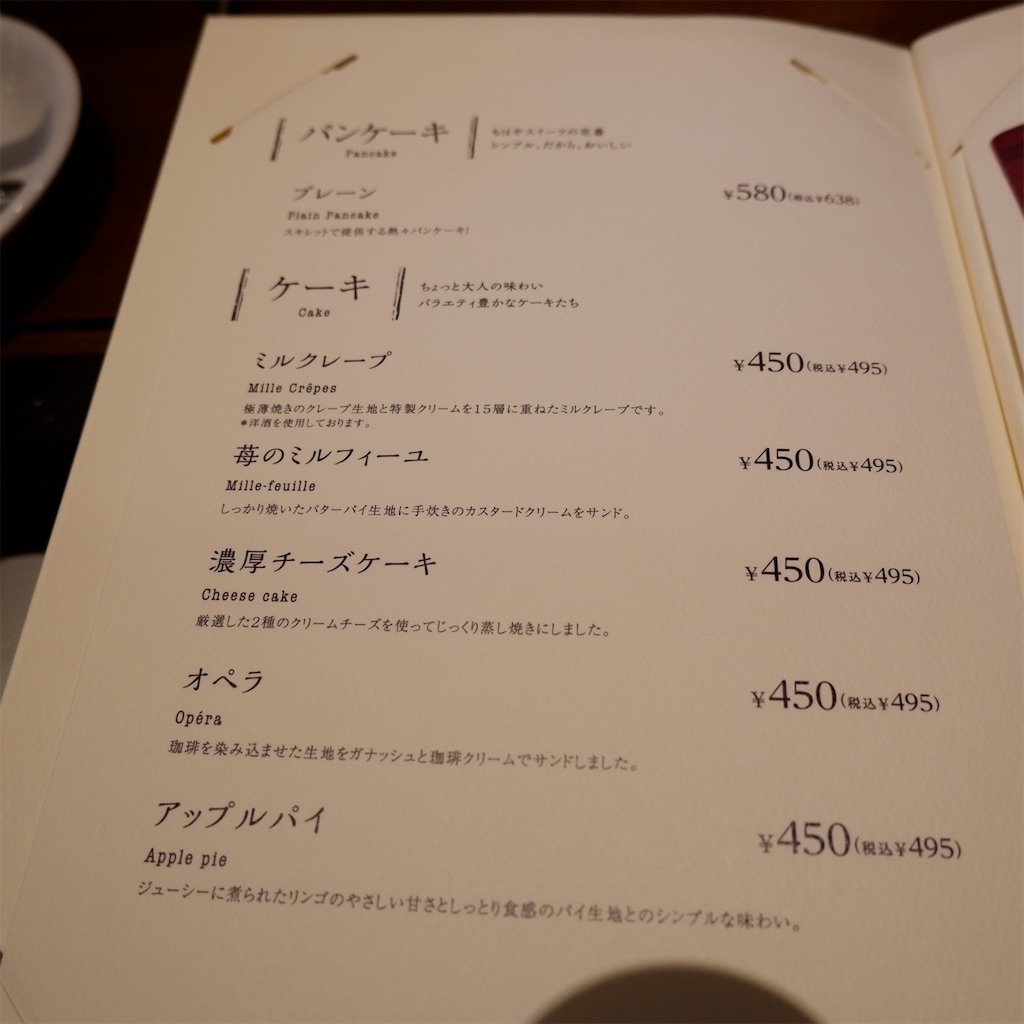 パンケーキ
Pancake
もはやスイーツの定番
シンプル、だから、おいしい
プレーン
¥580(税込¥638)
Plain Pancake
スキレットで提供する熱々パンケーキ!
ケーキ
Cake
ちょっと大人の味わい
バラエティ豊かなケーキたち
ミルクレープ
¥450(税込¥495)
Mille Crêpes
極薄焼きのクレープ生地と特製クリームを15層に重ねたミルクレープです。
*洋酒を使用しております。
苺のミルフィーユ
¥450(税込¥495)
Mille-feuille
しっかり焼いたバターパイ生地に手炊きのカスタードクリームをサンド。
濃厚チーズケーキ
¥450(税込¥495)
Cheese cake
厳選した2種のクリームチーズを使ってじっくり蒸し焼きにしました。
オペラ
¥450(税込¥495)
Opéra
珈琲を染み込ませた生地をガナッシュと珈琲クリームでサンドしました。
アップルパイ
¥450(税込¥495)
Apple pie
ジューシーに煮られたリンゴのやさしい甘さとしっとり食感のパイ生地とのシンプルな味わい。